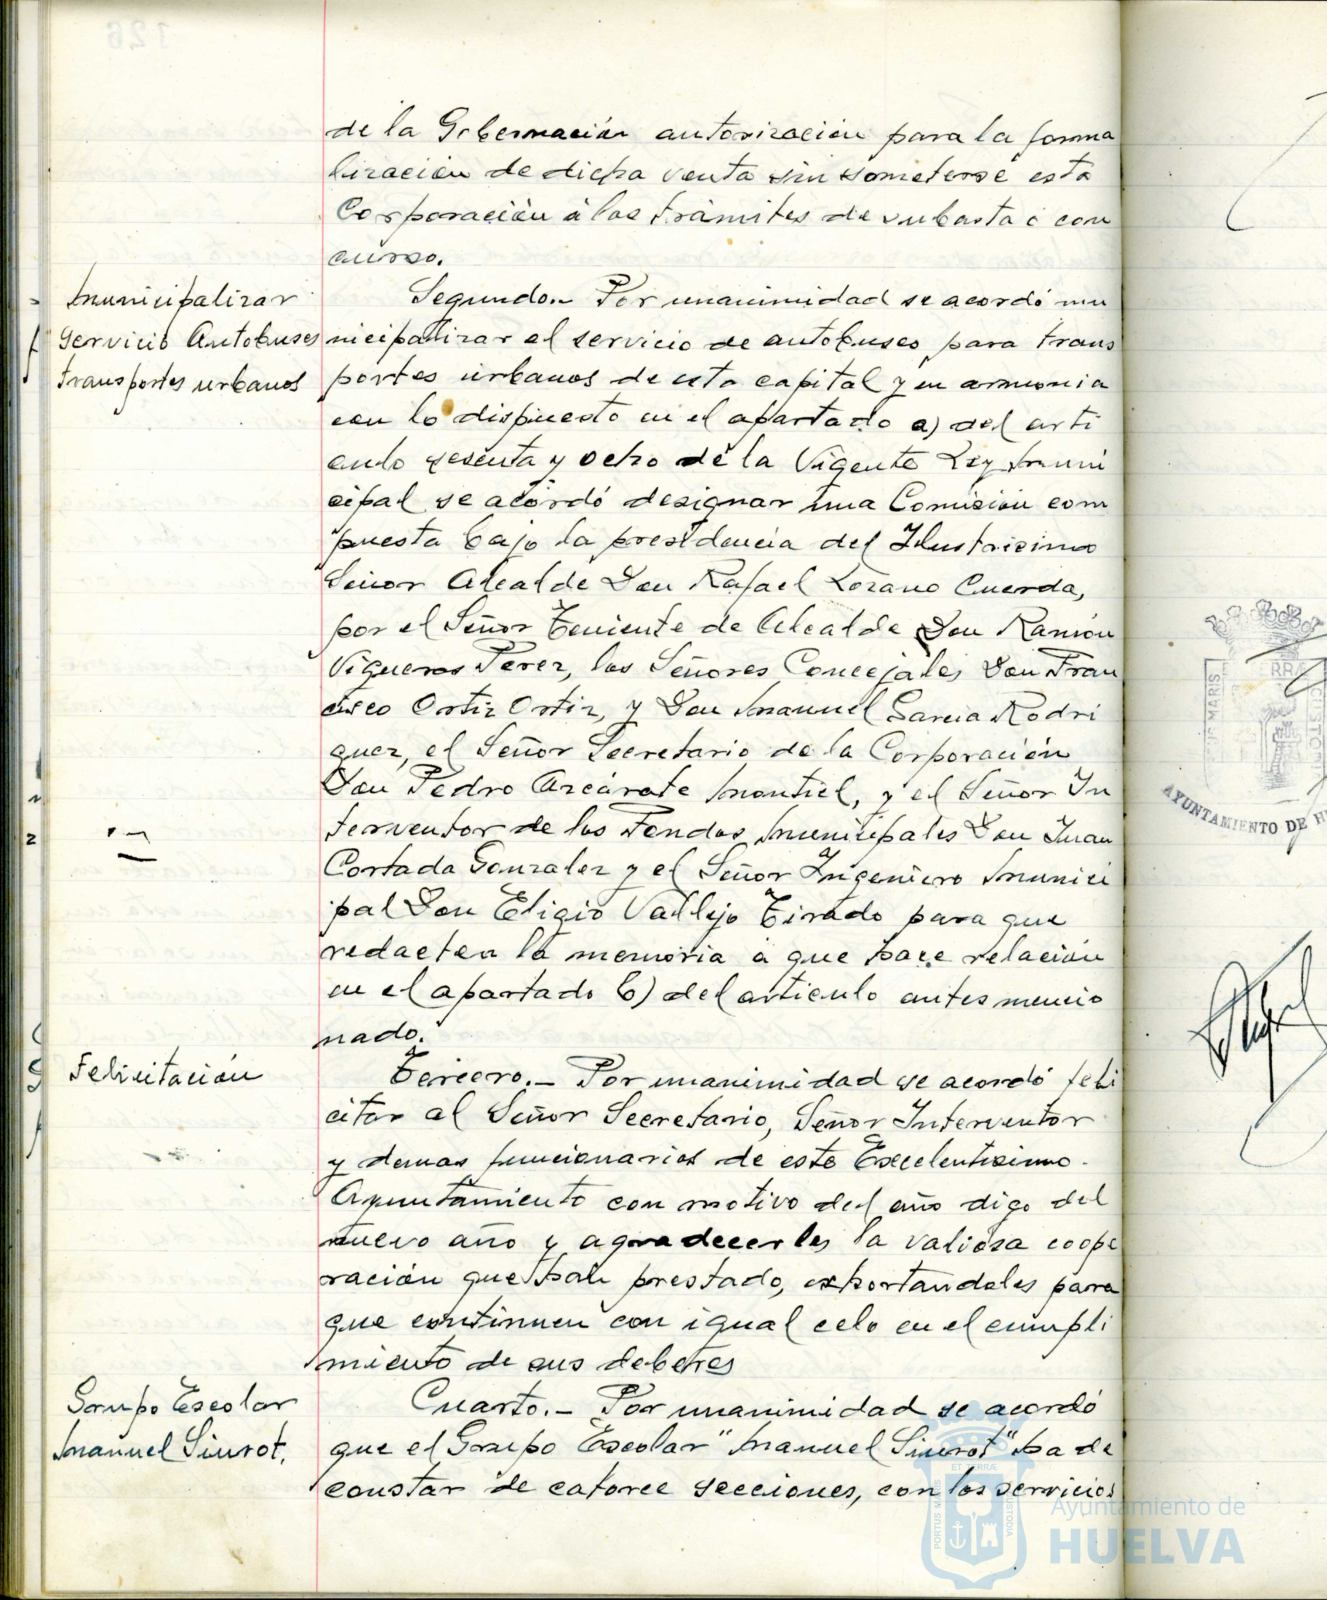 de la Gobernación autorización para la forma
lización de dicha venta sin someterse esta
Corporación á los trámites de subasta ó con
curso.
Municipalizar
Servicio Autobuses
transportes urbanos
Segundo.- Por unanimidad se acordó mu
nicipalizar el servicio de autobuses para trans
portes urbanos de esta capital y en armonia
con lo dispuesto en el apartado a) del arti
culo sesenta y ocho de la Vigente Ley Muni
cipal se acordó designar una Comisión com
puesta bajo la presidencia del Ilustrisimo
Señor Alcalde Don Rafael Lozano Cuerda,
por el Señor Teniente de Alcalde Don Ramón
Vigueras Perez, los Señores Concejales Don Fran
cisco Ortiz Ortiz, y Don Manuel Garcia Rodri
guez, el Señor Secretario de la Corporación
Don Pedro Azcárate Montiel, y el Señor In
terventor de los Fondos Municipales Don Juan
Cortada Gonzalez y el Señor Ingeniero Munici
pal Don Eligio Vallejo Tirado para que
redacten la memoria a que hace relación
en el apartado b) del articulo antes mencio
nado.
Felicitación
Tercero.- Por unanimidad se acordó feli
citar al Señor Secretario, Señor Interventor
y demas funcionarios de este Excelentisimo
Ayuntamiento con motivo del año digo del
nuevo año y agradecerles la valiosa coope
ración que han prestado, exhortandoles para
que continuen con igual celo en el cumpli
miento de sus deberes
Grupo Escolar
Manuel Siurot.
Cuarto.- Por unanimidad se acordó
que el Grupo Escolar "Manuel Siurot" ha de
constar de catorce secciones, con los servicios
AYUNTAMIENTO DE H
Ayuntamiento de
HUELVA